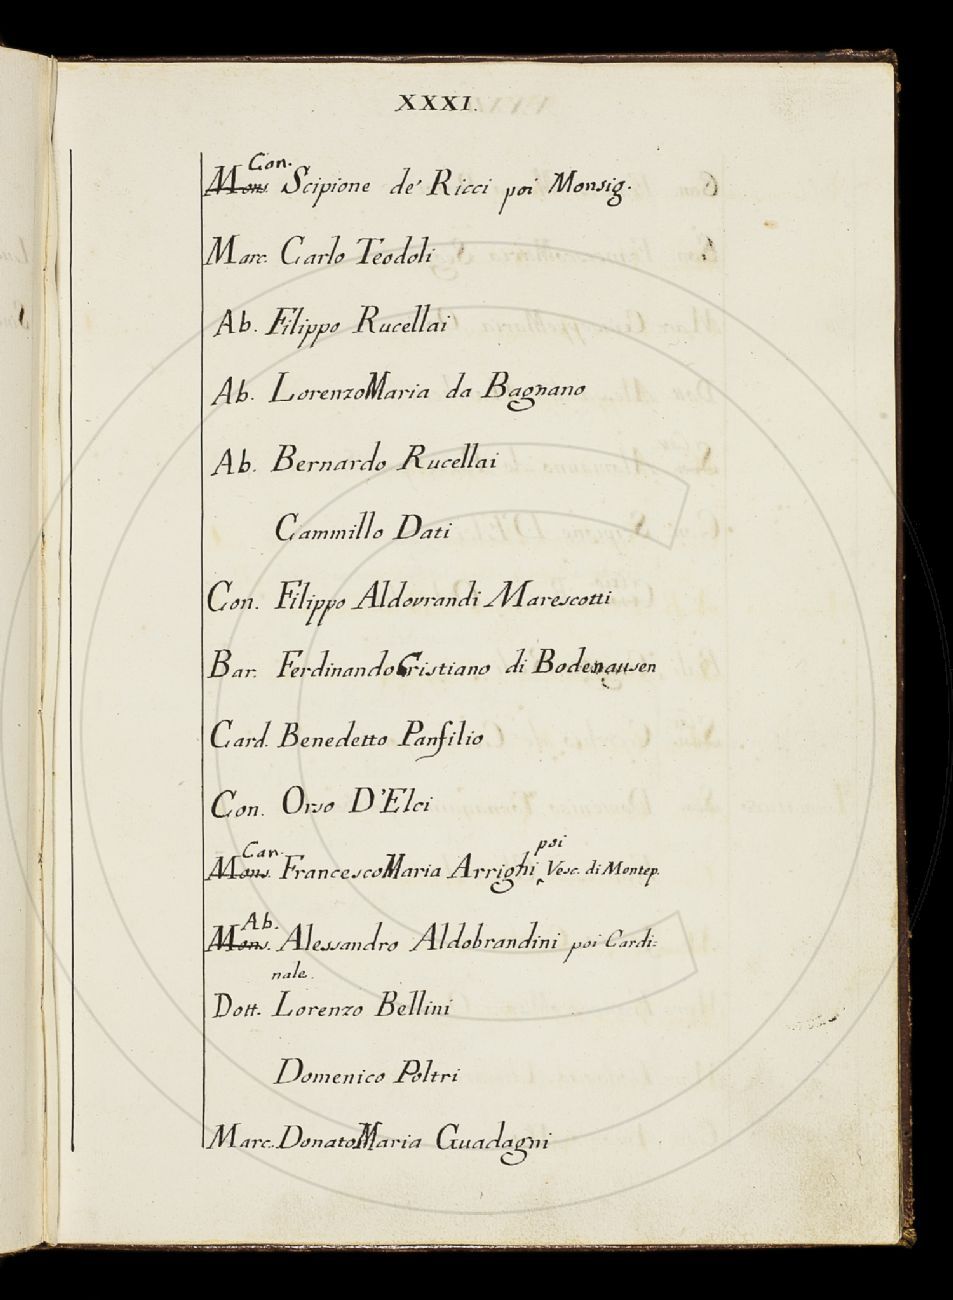 XXXI.
Con.
Mons. Scipione de' Ricci poi Monsig.
Marc. Carlo Teodoli
Ab. Filippo Rucellai
Ab. LorenzoMaria da Bagnano
Ab. Bernardo Rucellai
Cammillo Dati
Con. Filippo Aldovrandi Marescotti
Bar. FerdinandoCristiano di Bodenausen
Card. Benedetto Panfilio
Con. Orso D'Elci
Can. poi
Mons. FrancescoMaria Arrighi Vesc. di Montep.
Ab.
Mons. Alessandro Aldobrandini poi Cardi:
nale.
Dott. Lorenzo Bellini
Domenico Poltri
Marc. DonatoMaria Guadagni